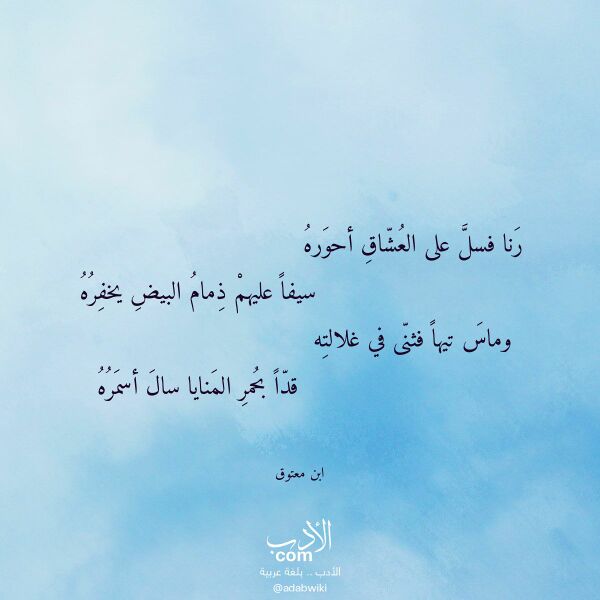 رَنا فسلَّ على العُشّاقِ أحوَرهُ
سيفاً عليهمْ ذِمامُ البيضِ يخفِرُهُ
وماسَ تيهاً فثنّى في غلالتِه
قدّاً بحُمرِ المَنايا سالَ أسمَرُهُ
ابن معتوق
الأدب
com
الأدب .. بلغة عربية
@adabwiki